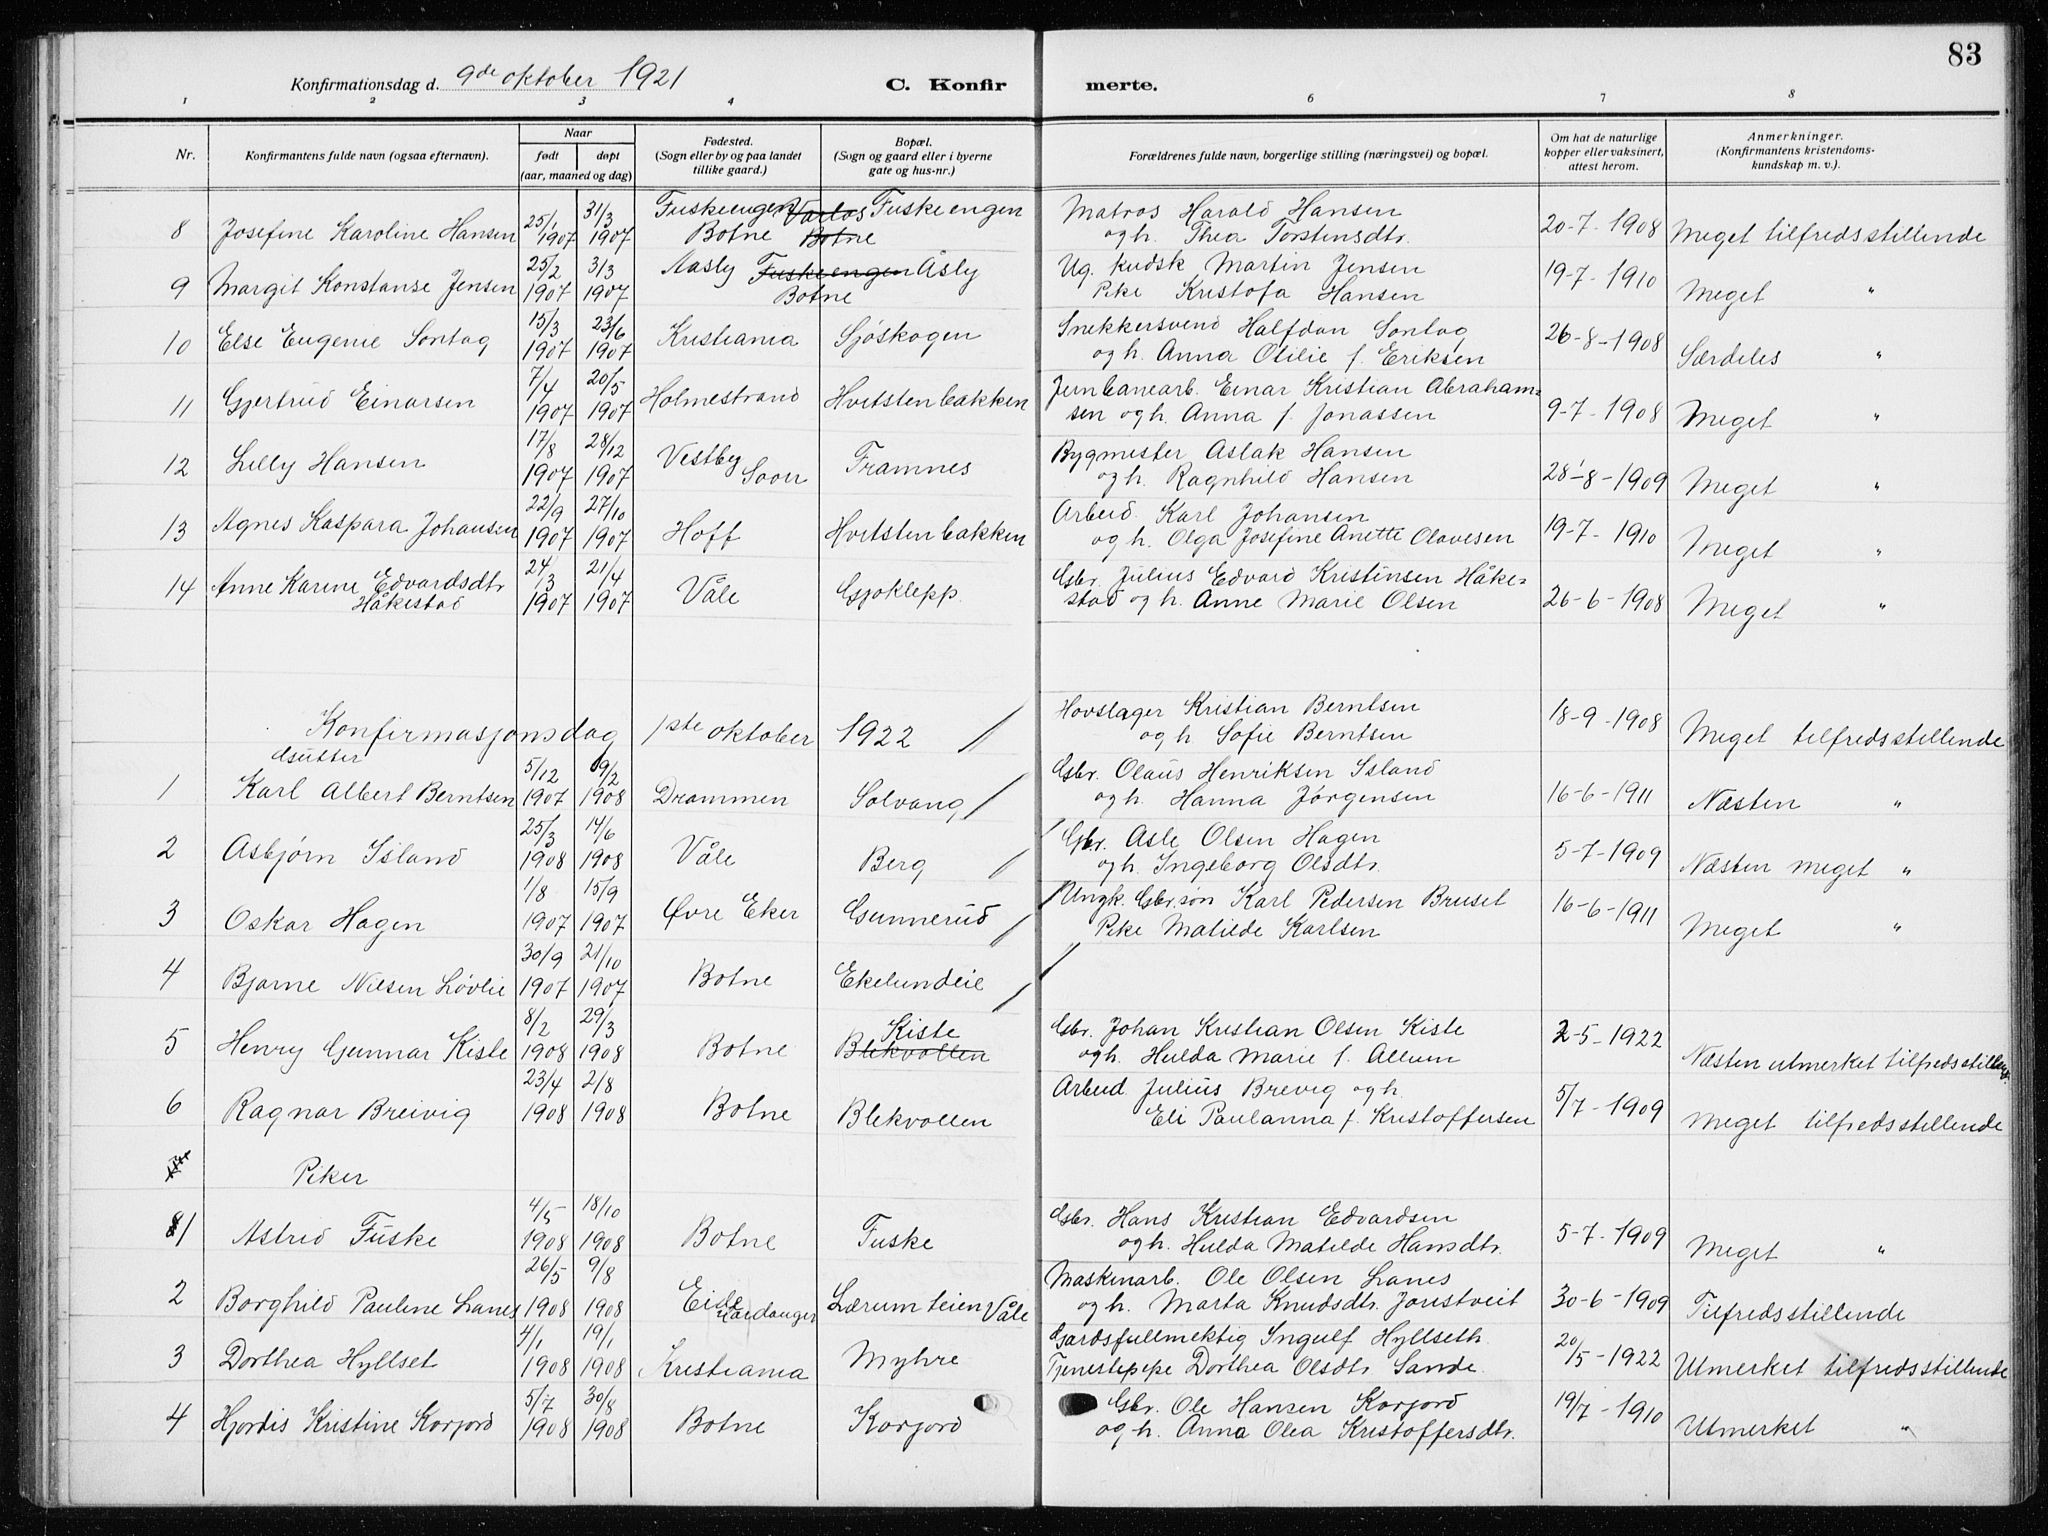 83
Konfirmationsdag d. 9de oktober 1921 C. Konfir merte.
1 2 3 4 6 7 8
Nr. Konfirmantens fulde navn (ogsaa efternavn). Naar født døpt (aar, maaned og dag) Fødested. (Sogn eller by og paa landet tillike gaard.) Bopæl. (Sogn og gaard eller i byerne gate og hus-nr.) Forældrenes fulde navn, borgerlige stilling (næringsvei) og bopæl. Om hat de naturlige kopper eller vaksinert, attest herom. Anmerkninger. (Konfirmantens kristendoms-kundskap m. v.).
8 Josefine Karoline Hansen 25/1 1907 31/3 1907 Fuskeengen Botne Varlos Botne Fuskeengen Matros Harald Hansen
og h. Thea Torstensdtr. 20-7-1908 Meget tilfredsstillende
9 Margit Konstanse Jensen 25/2 1907 3/3 1907 Aasly Botne Fuskeengen Åsly Ug. kudsk Martin Jensen
Pike Kristofa Hansen 19-7-1910 Meget "
10 Else Eugenie Sontag 15/3 1907 23/6 1907 Kristiania Sjøskogen Snekkersvend Halfdan Sontag
og h. Anna Otilie f. Eriksen 26-8-1908 Særdeles "
11 Gjertrud Einarsen 7/4 1907 20/5 1907 Holmestrand Hvitstenbakken Jernbanearb. Einar Kristian Abraham-
sen og h. Anna f. Jonassen 9-7-1908 Meget "
12 Lilly Hansen 17/8 1907 28/12 1907 Vestby Soon Framnes Bygmester Aslak Hansen
og h. Ragnhild Hansen 28-8-1909 Meget "
13 Agnes Kaspara Johansen 22/9 1907 27/10 1907 Hoff Hvitstenbakken Arbeid. Karl Johansen
og h. Olga Josefine Anette Olavesen 19-7-1910 Meget "
14 Anne Karine Edvardsdtr Håkestad 24/3 1907 21/4 1907 Våle Gjøklepp. Gbr. Julius Edvard Kristinsen Håke-
stad og h. Anne Marie Olsen 26-6-1908 Meget "
Konfirmasjonsdag 1ste oktober 1922
Gutter
Hovslager Kristian Berntsen
og h Sofie Berntsen 18-9-1908 Meget tilfredsstillende
1 Karl Albert Berntsen 5/12 1907 9/2 1908 Drammen Solvang Gbr. Olaus Henriksen Island
og h. Hanna Jørgensen 16-6-1911 Næsten "
2 Asbjørn Island 25/3 1908 14/6 1908 Våle Berg Gbr. Asle Olsen Hagen
og h. Ingeborg Olsdtr. 5-7-1909 Næsten meget "
3 Oskar Hagen 1/8 1907 15/9 1907 Øvre Eker Gunnerud Ungk. Gbr.søn Karl Pedersen Bruset
Pike Matilde Karlsen 16-6-1911 Meget "
4 Bjarne Nilsen Løvlie 30/9 1907 21/10 1907 Botne Ekelundeie
5 Henry Gunnar Kiste 8/2 1908 29/3 1908 Botne Kiste Blekvollen Gbr. Johan Kristian Olsen Kiste
og h. Hulda Marie f. Allum 2-5-1922 Næsten utmerket tilfredsstill.
6 Ragnar Breivig 23/4 1908 2/8 1908 Botne Blekvollen Arbeid Julius Brevig og h.
Eli Paulanna f. Kristoffersen 5/7-1909 Meget tilfredsstillende
Piker
1 Astrid Fuske 4/5 1908 18/10 1908 Botne Fuske Gbr. Hans Kristian Edvardsen
og h. Hulda Matilde Hansdtr. 5-7-1909 Meget "
2 Borghild Pauline Lanes 26/5 1908 9/8 1908 Eide Hardanger Lærumteien Våle Maskinarb. Ole Olsen Lanes
og h. Marta Knudsdtr. Jonstveit 30-6-1909 Tilfredsstillende
3 Dorthea Hyllset 4/1 1908 19/1 1908 Kristiania Myhre Gardsfullmektig Ingulf Hyllseth
Tjenestepepe Dorthea Olsdtr Sande 20/5-1922 Utmerket tilfredsstillende
4 Hjordis Kristine Korjord 5/7 1908 30/8 1908 Botne Korjord Gbr. Ole Hansen Korjord
og h. Anna Olea Kristoffersdtr. 19/7-1910 Utmerket "